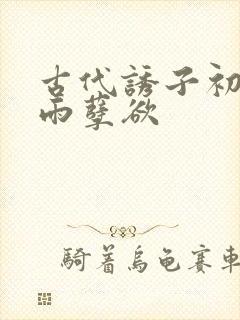 古代誘子初
雨孽欲
騎着烏龟賽車